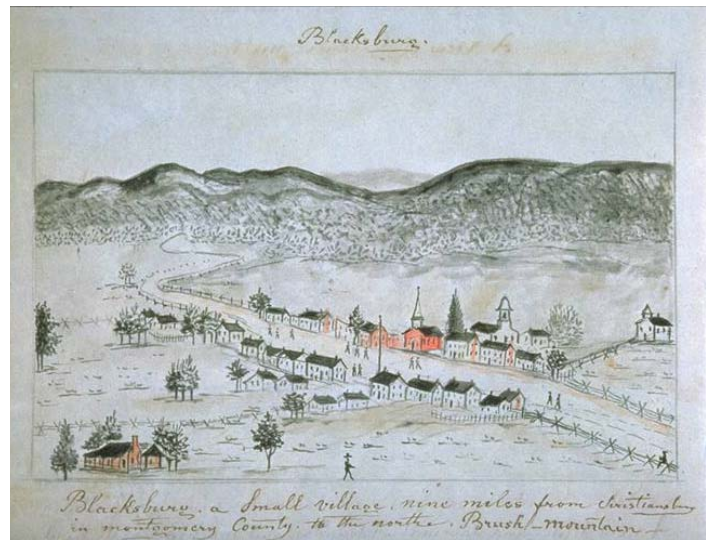 Blacksburg.
Blacksburg. a Small village. nine miles from Christiansburg
in montgomery County. to the northe. Brush-mountain-